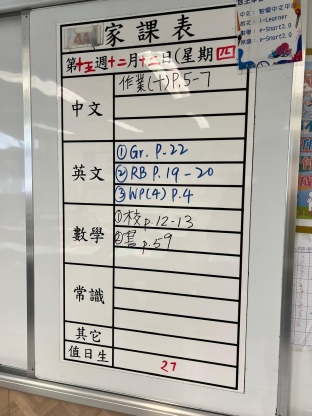 4A 家課表
第十五週十二月十二日(星期四
中文
作業(十)P.5-7
英文
①Gr. P.22
②RB P.19-20
③WP(4) P.4
數學
①校 p.12-13
②書 p.59
常識
其它
值日生
27
中文: 智愛中文平
英文: i-Learner
e-Smart2.0
e-Smart2.0